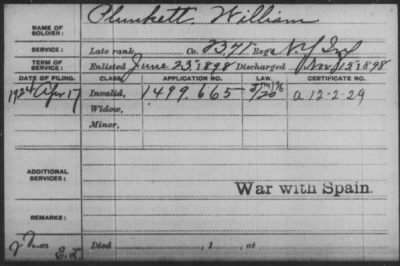 NAME OF SOLDIER: Plunkett, William
SERVICE: Late rank, Co. 71" Reg't N.Y. Inf
TERM OF SERVICE: Enlisted June 23" 1898 Discharged Nov 15" 1898
DATE OF FILING. CLASS. APPLICATION NO. LAW. CERTIFICATE NO.
1924 Apr 17 Invalid, 1499.665 a 12-2-29
Widow,
Minor,
ADDITIONAL SERVICES:
War with Spain.
REMARKS:
Died , 1 , at